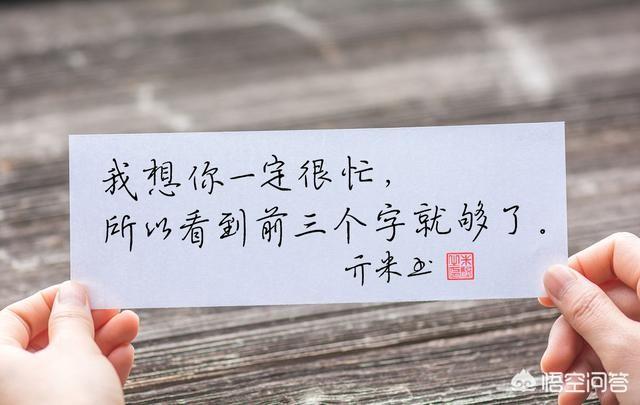 我想你一定很忙，
所以看到前三个字就够了。
亓米书
悟空问答